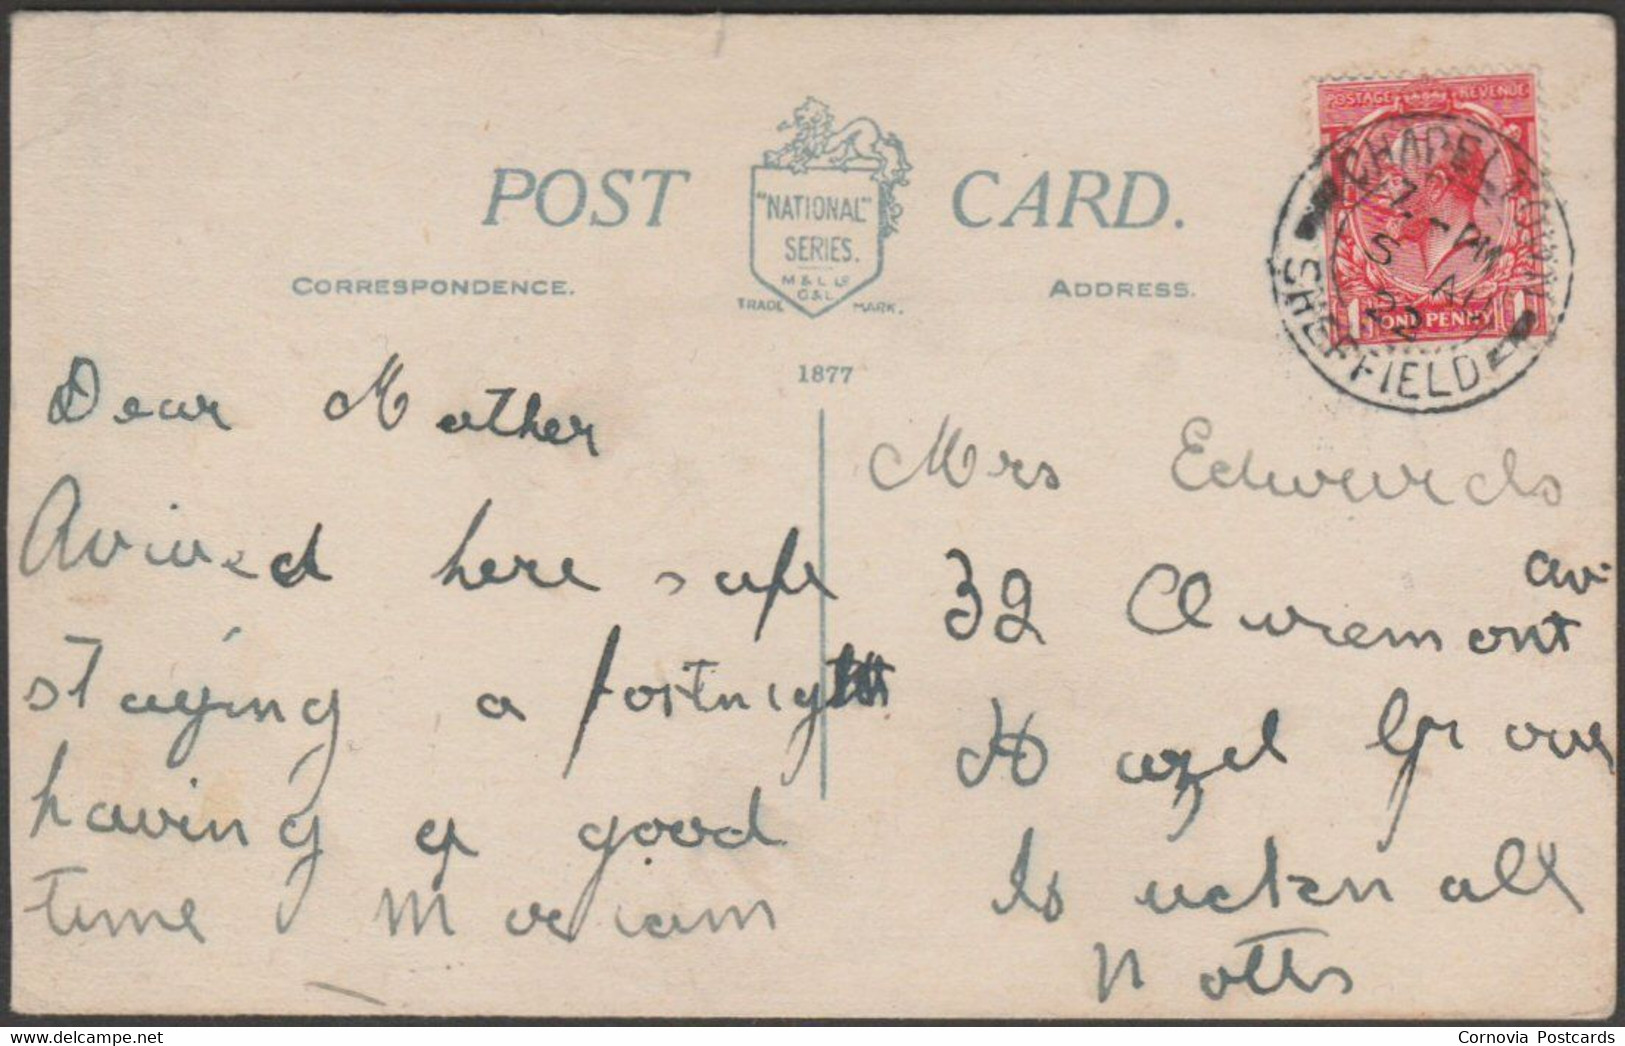 POST CARD.
"NATIONAL"
SERIES.
M & L Ld
TRADE MARK.
CORRESPONDENCE.
ADDRESS.
1877
POSTAGE REVENUE
1 ONE PENNY 1
CHAPELTOWN
SHEFFIELD
7 - PM
22
Dear Mother
Arived here safe
staying a fortnight
having a good
time Moriam
Mrs Edwards
32 Claremont av
Hazel Grove
Notts
Cornovia Postcards